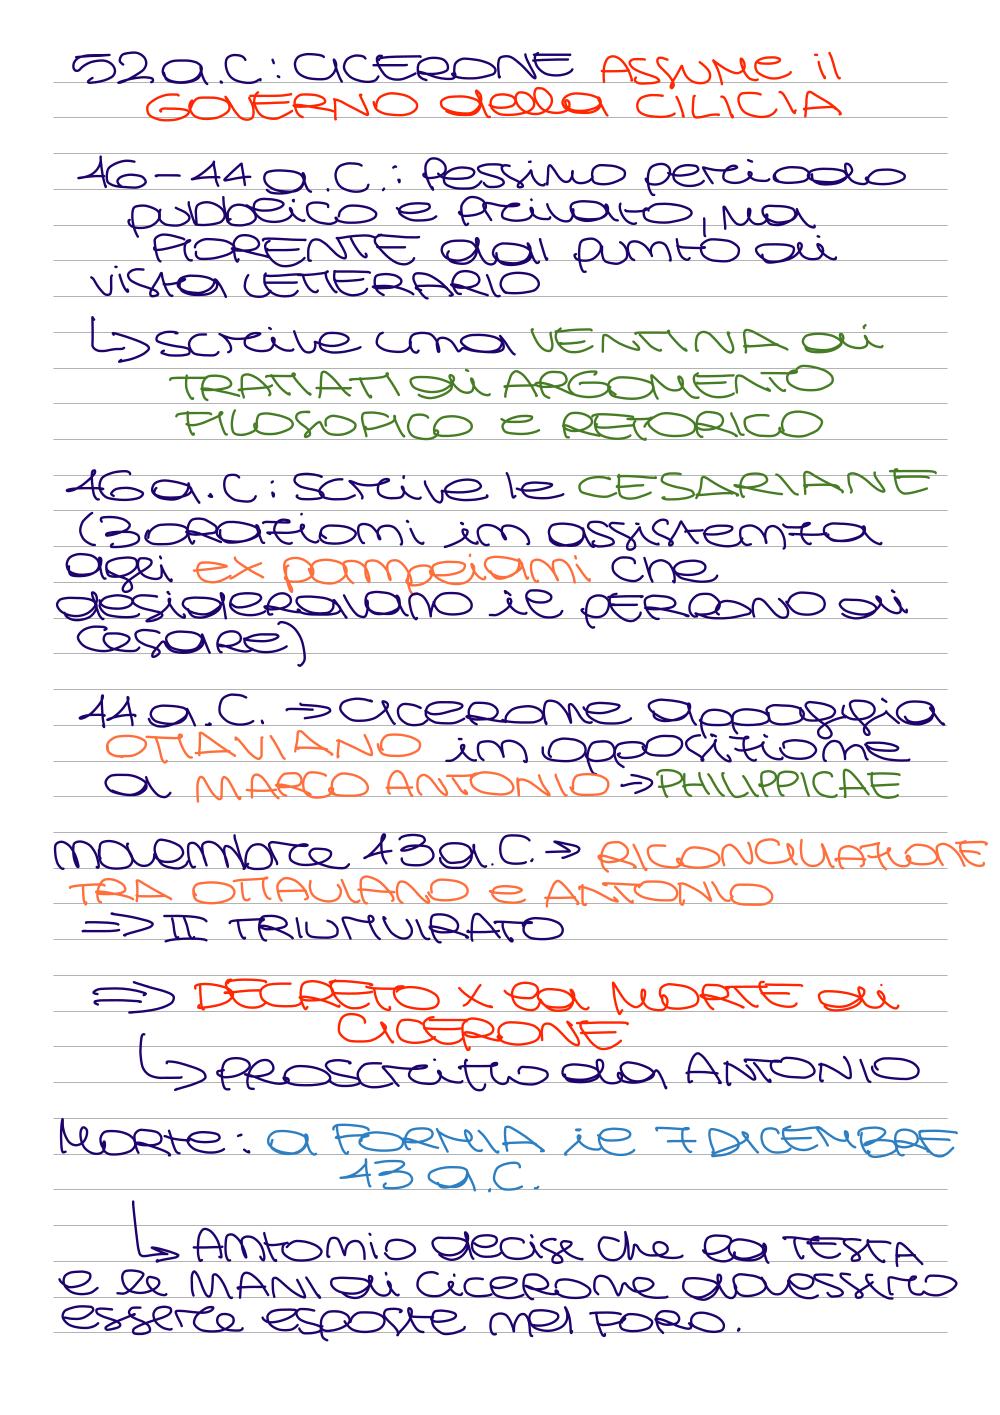 52 a.C.: CICERONE ASSUME il
GOVERNO della CILICIA
46-44 a.C.: Pessimo periodo
pubblico e privato, ma
FIORENTE dal punto di
vista LETTERARIO
↳ scrive una VENTINA di
TRATTATI di ARGOMENTO
FILOSOFICO e RETORICO
46 a.C.: Scrive le CESARIANE
(3 orazioni in assistenza
agli ex pompeiani che
desideravano il PERDONO di
Cesare)
44 a.C. → Cicerone appoggia
OTTAVIANO in opposizione
a MARCO ANTONIO → PHILIPPICAE
novembre 43 a.C. → RICONCILIAZIONE
TRA OTTAVIANO e ANTONIO
⇒ II TRIUMVIRATO
⇒ DECRETO x la MORTE di
CICERONE
↳ PROSCRITTO da ANTONIO
MORTE: a FORMIA il 7 DICEMBRE
43 a.C.
↳ Antonio decise che la TESTA
e le MANI di Cicerone dovessero
essere esposte nel FORO.